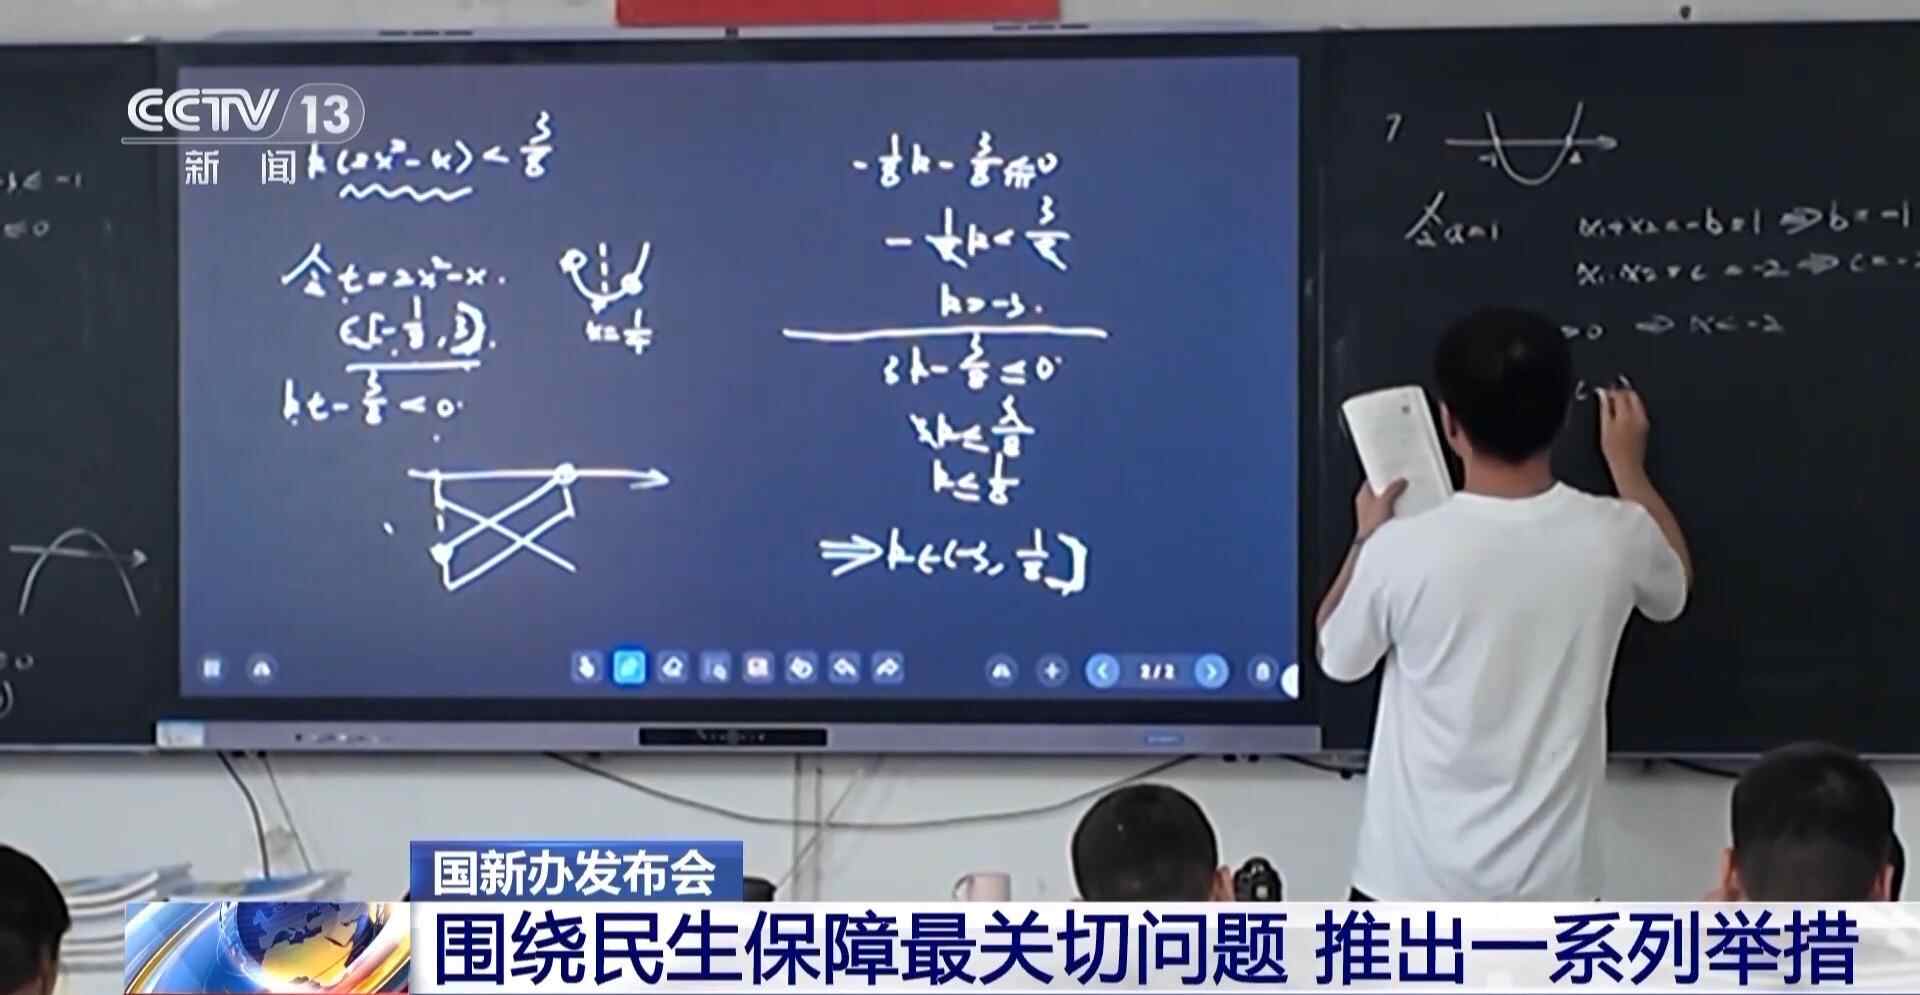 CCTV 13
新闻
k(2x²-x)<3/8
令t=2x²-x.
∈[-1/8,3].
kt-3/8<0.
x=1/4
-1/8k-3/8<0
-1/8k<3/8
k>-3.
3k-3/8≤0
3k≤3/8
k≤1/8
⇒k∈(-3,1/8]
2/2
7
-1
2
令a=1
x₁+x₂=-b=1⇒b=-1
x₁·x₂=c=-2⇒c=-2
>0 ⇒x<-2
≤0
国新办发布会
围绕民生保障最关切问题 推出一系列举措